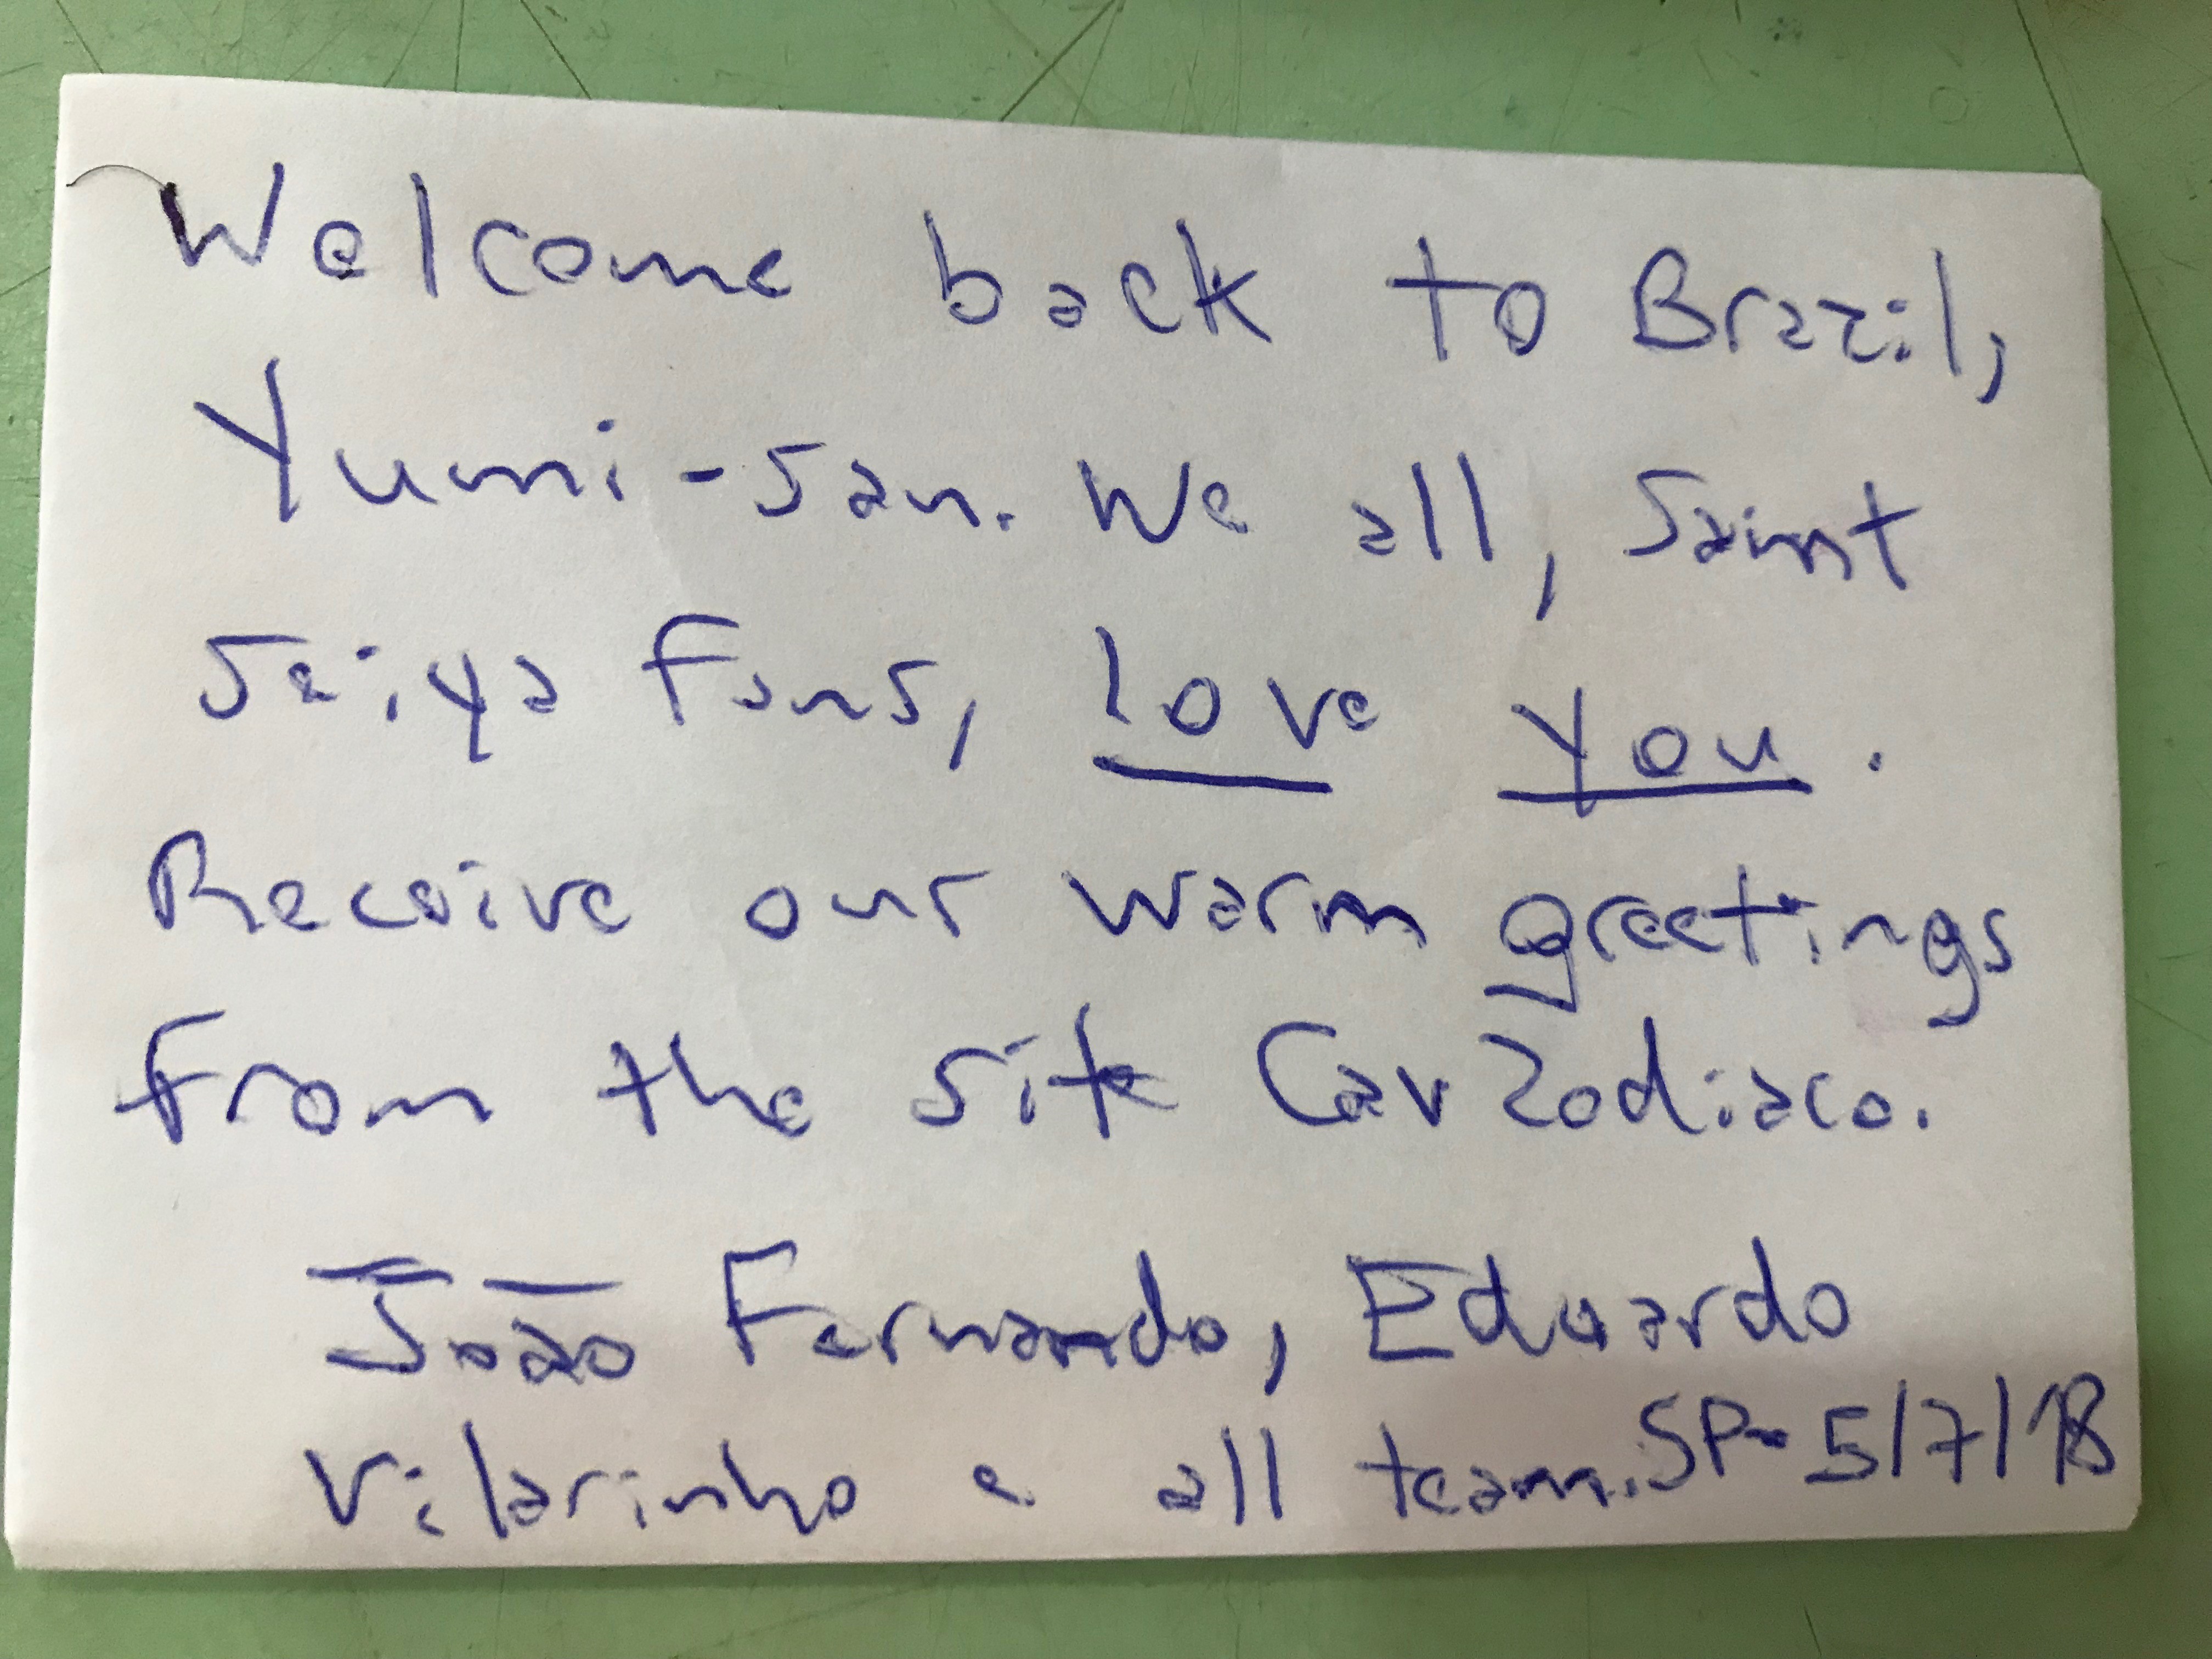 Welcome back to Brazil,
Yumi-san. We all, Saint
Seiya fans, love you.
Receive our warm greetings
from the site CavZodiaco.
João Fernando, Eduardo
Vilarinho e all team. SP- 5/7/18